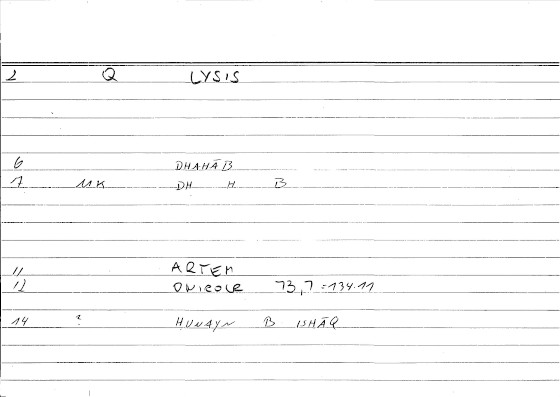 2 Q LYSIS
6 DHAHĀB
7 MK DH H B
11 ARTEM
12 ONICOLR 73,7=134.11
14 ? HUNAYN B ISHĀQ